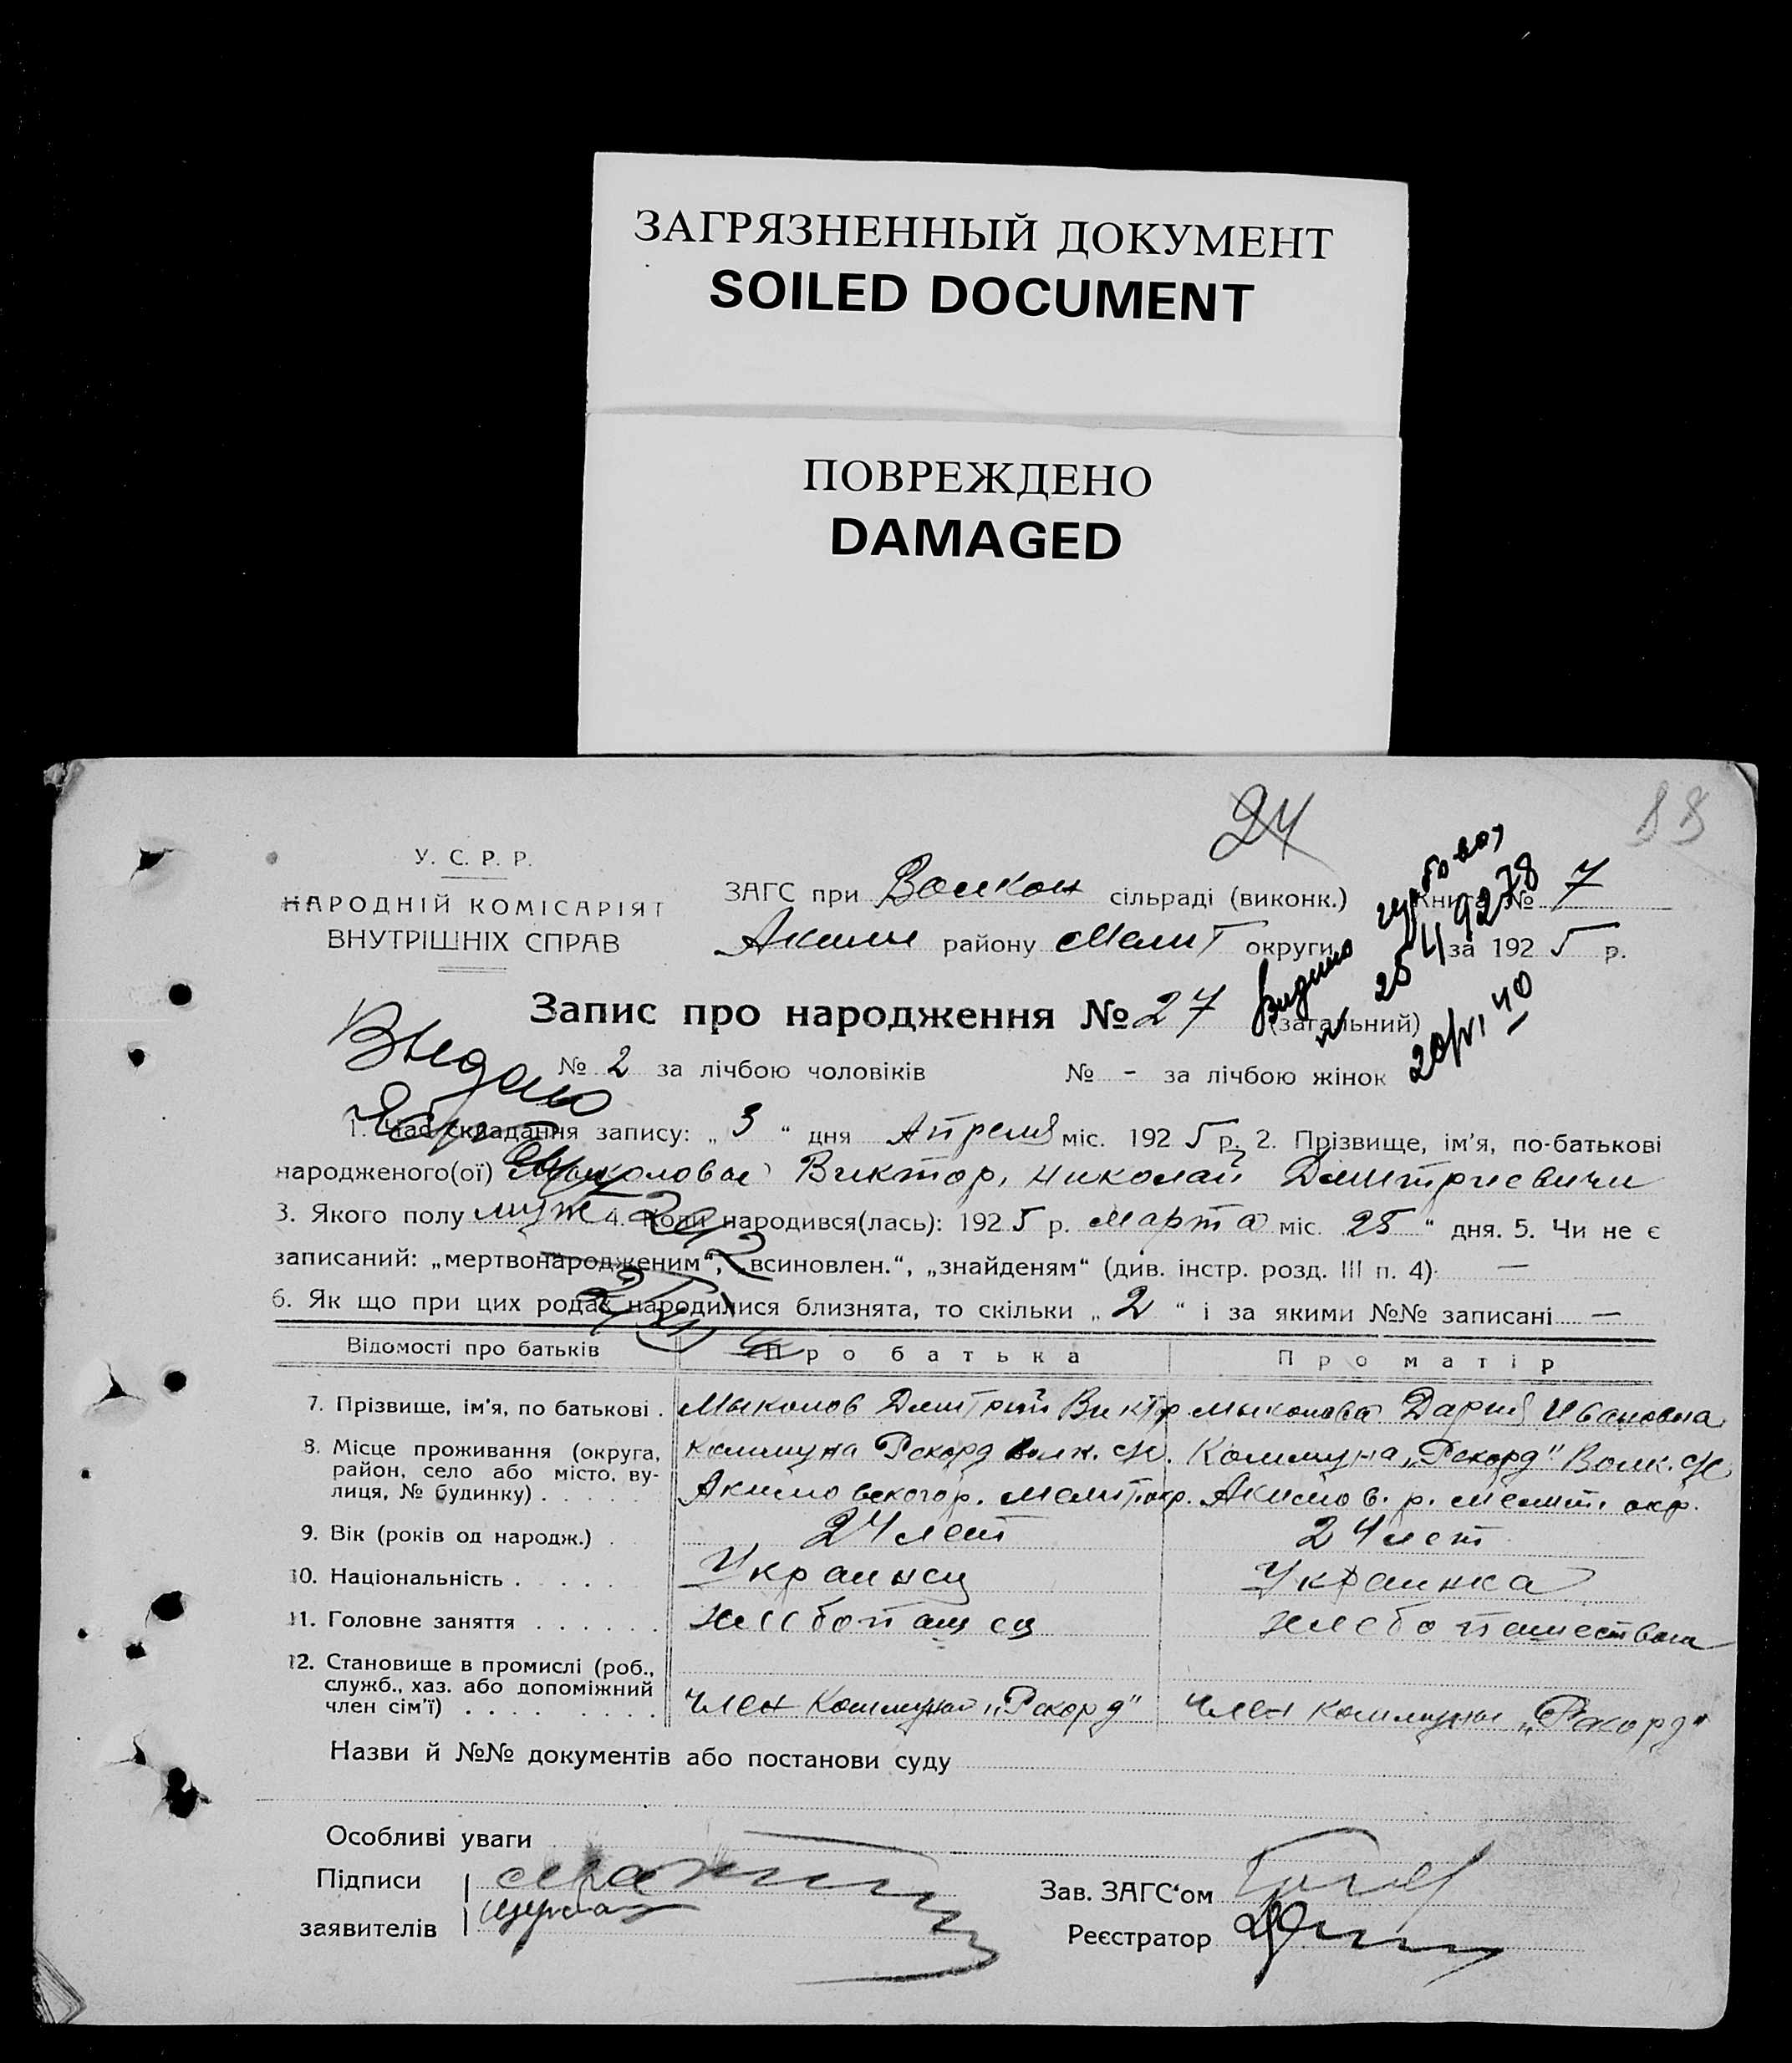 ЗАГРЯЗНЕННЫЙ ДОКУМЕНТ
SOILED DOCUMENT
ПОВРЕЖДЕНО
DAMAGED
24
88
У. С. Р. Р.
НАРОДНІЙ КОМІСАРІЯТ
ВНУТРІШНІХ СПРАВ
ЗАГС при Волкон сільраді (виконк.) Книга № 7
Аким району Мелит округи за 1925 р.
Запис про народження № 27 (загальний)
№ 2 за лічбою чоловіків № - за лічбою жінок
20/VI 40
Выдано
1. Час складання запису: „3“ дня Апреля міс. 1925 р. 2. Прізвище, ім'я, по-батькові
народженого(ої) Виктор, Николай Дмитриевичи
3. Якого полу муж 4. Коли народився(лась): 1925 р. марта міс. 25“ дня. 5. Чи не є
записаний: „мертвонародженим“, „всиновлен.“, „знайденям“ (див. інстр. розд. III п. 4) —
6. Як що при цих родах народилися близнята, то скільки „2“ і за якими №№ записані —
Відомості про батьків Про батька Про матір
7. Прізвище, ім'я, по батькові . Мыколов Дмитрий Виктор Мыколова Дария Ивановна
8. Місце проживання (округа, район, село або місто, вулиця, № будинку) . . . . .
Коммуна Рекорд Волк. с/с. Коммуна „Рекорд" Волк. с/с
Акимовского р. Мелит. окр. Акимов. р. Мелит. окр.
9. Вік (років од народж.) . 24 лет 24 лет
10. Національність . . . . . Украинец Украинка
11. Головне заняття . . . . . . хлебопашец хлебопашеством
12. Становище в промислі (роб., служб., хаз. або допоміжний член сім'ї) . . . . . . . .
член Коммуны „Рекорд" член коммуны „Рекорд"
Назви й №№ документів або постанови суду
Особливі уваги
Підписи
заявителів
Зав. ЗАГС'ом
Реєстратор